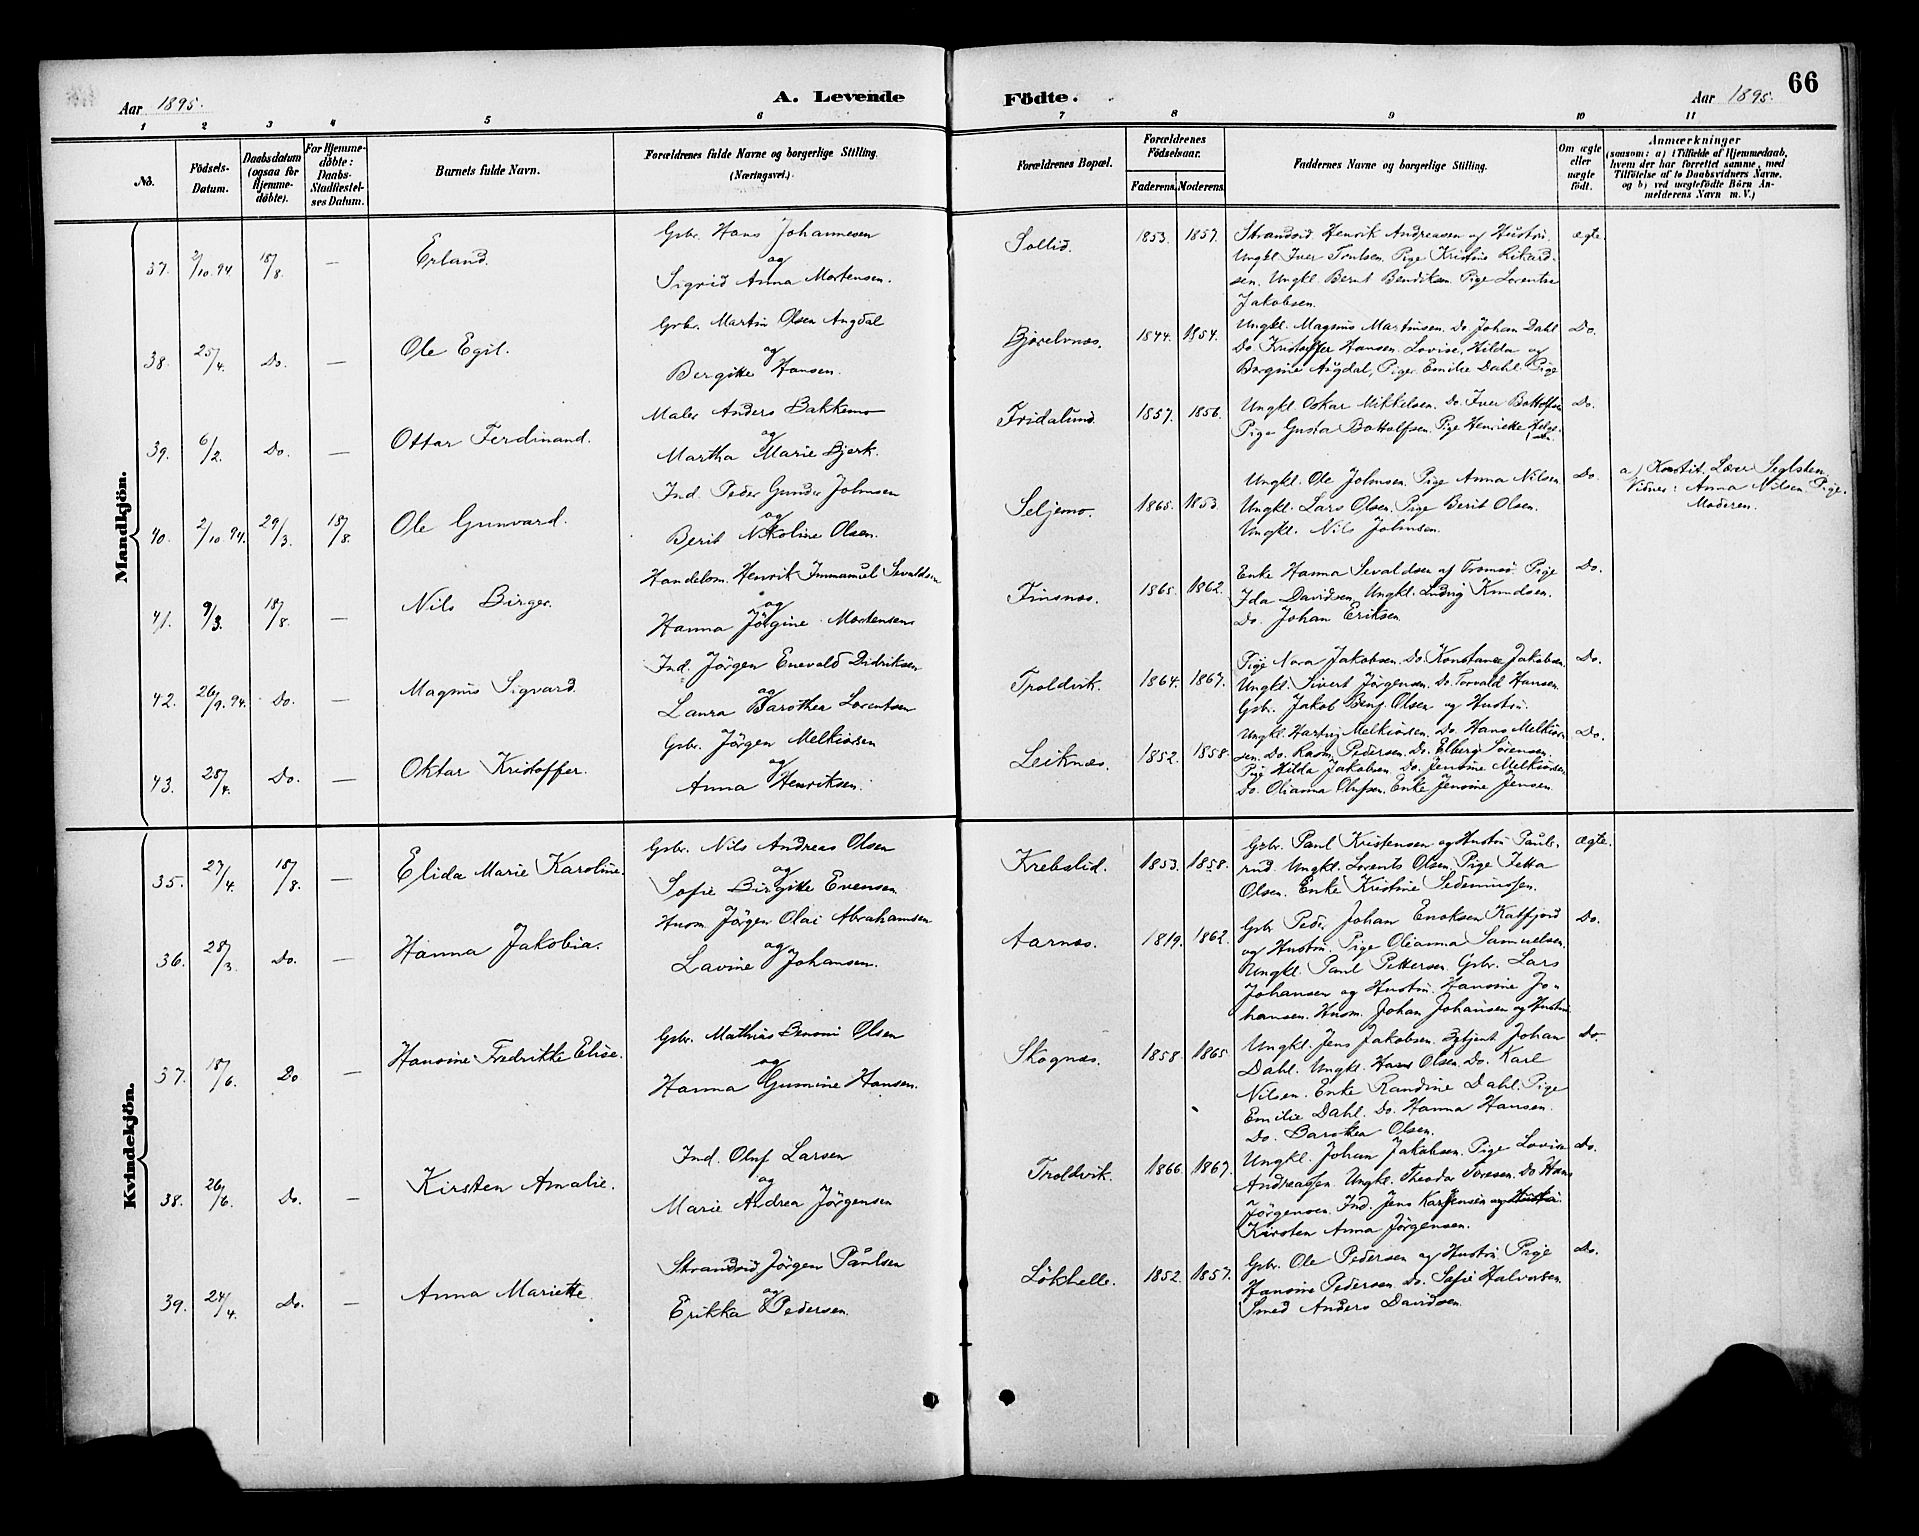 Aar 1895. A. Levende Födte. Aar 1895. 66
1 2 3 4 5 6 7 8 9 10 11
No. Födsels-Datum. Daabsdatum (ogsaa for Hjemmedøbte). For Hjemmedøbte: Daabs-Stadfæstelses Datum. Barnets fulde Navn. Forældrenes fulde Navne og borgerlige Stilling. (Næringsvei.) Forældrenes Bopæl. Forældrenes Födselsaar. Faderens. Moderens. Faddernes Navne og borgerlige Stilling. Om ægte eller uægte födt. Anmærkninger
(saasom: a) i Tilfælde af Hjemmedaab, hvem der har forrettet samme, med Tilföielse af to Daabsvidners Navne, og b) ved uægtefödte Börn Anmelderens Navn m. V.)
Mandkjön.
37. 2/10. 94 18/8. — Erland. Gbr. Hans Johannesen
og
Sigrid Anna Mortensen.
Sollid. 1853. 1857. Strandsid. Henrik Andreasen og Hustru.
Ungkl. Iver Pige Kristine Rikard-
sen. Ungkl. Bernt Bendiksen. Pige Lorentse
Jakobsen.
ægte.
38. 25/4. Do. — Ole Egil. Gbr. Martin Olsen Angdal
og
Bergitte Hansen.
Bjorelvnæs. 1844. 1854. Ungkl. Magnus Martinsen. Do. Johan Dahl
Do. Kristoffer Hansen. Lovise, Hilda og
Borgine Angdal, Piger. Emilie Dahl. Pige
Do.
39. 6/2. Do. — Ottar Ferdinand. Maler Anders Bakkemo
og
Martha Marie Bjerk.
Fridalund. 1857. 1856. Ungkl. Oskar Mikkelsen. Do. Iver Bottolfsen
Pige Gusta Bottolfsen. Pige Henrikke
Do.
40. 2/10 94. 29/3. 18/8. Ole Gunvard. Ind. Peder Gunder Johnsen
og
Berit Nikoline Olsen.
Seljemo. 1865. 1853. Ungkl. Ole Johnsen. Pige Anna Nilsen
Ungkl. Lars Olsen. Pige Berit Olsen.
Ungkl. Nils Johnsen.
Do. a) Konstit. Lærer Seglsten
Vidner: Anna Nilsen. Pige.
Moderen.
41. 9/3. 18/8. — Nils Birger. Handelsm. Henrik Immanuel Sevaldsen
og
Hanna Jörgine Mortensen
Finsnæs. 1865. 1862. Enke Hanna Sevaldsen af Tromsö. Pige
Ida Davidsen. Ungkl. Ludvig Knudsen.
Do. Johan Eriksen.
Do.
42. 26/9. 94. Do. — Magnus Sigvard. Ind. Jörgen Enevald Didriksen
og
Laura Barothea Lorentsen
Troldvik. 1864. 1867. Pige Nora Jakobsen. Do. Konstance Jakobsen.
Ungkl. Sivert Jörgensen. Do. Torvald Hansen.
Gbr. Jakob Benj. Olsen og Hustru.
Do.
43. 28/4. Do. — Oktar Kristoffer. Gbr. Jörgen Melkiorsen
og
Anna Henriksen.
Leiknæs. 1852. 1858. Ungkl. Hartvig Melkiorsen. Do. Hans Melkior-
sen. Do. Rasm. Pedersen. Do. Elberg Sörensen.
Pige Hilda Jakobsen. Do. Jensine Melkiorsen
Do. Olianna Olufsen. Enke Jensine Jensen.
Do.
Kvindekjön.
35. 27/4. 18/8. — Elida Marie Karoline. Gbr. Nils Andreas Olsen
og
Sofie Birgitte Evensen
Krebslid. 1853. 1858. Gbr. Paul Kristensen og Hustru Pauls-
rud. Ungkl. Lorents Olsen. Pige Jetta
Olsen. Enke Kristine
ægte.
36. 28/3. Do. — Hanna Jakobia. Husm. Jörgen Olai Abrahamsen
og
Lavine Johansen.
Aarnæs. 1819. 1862. Gbr. Peder Johan Enoksen Kalfjord
og Hustru. Pige Olianna Samuelsen.
Ungkl. Paul Pettersen. Gbr. Lars
Johansen og Hustru. Hansine Jo-
hansen. Husm. Johan Johansen og Hustru
Do.
37. 18/6. Do — Hansine Fredrikke Elise. Gbr. Mathias Benoni Olsen
og
Hanna Gumine Hansen.
Skognæs. 1858. 1865. Ungkl. Jens Jakobsen. Johan
Dahl. Ungkl. Hans Olsen. Do. Karl
Nilsen. Enke Randine Dahl. Pige
Emilie Dahl. Do. Hanna Hansen.
Do. Barothea Olsen.
Do.
38. 26/6. Do. — Kirsten Amalie. Ind. Oluf Larsen
og
Marie Andrea Jörgensen
Troldvik. 1866. 1867. Ungkl. Johan Jakobsen. Pige Lovise
Andreassen. Ungkl. Theodor Toresen. Do. Hans
Jörgensen. Ind. Jens Karl Jensen og Hustru.
Kirsten Anna Jörgensen.
Do.
39. 24/4. Do. — Anna Mariette. Strandsid Jörgen Paulsen
og
Erikka Pedersen.
Lökhelle. 1852. 1857. Gbr. Ole Pedersen og Hustru. Pige
Hansine Pedersen. Do. Sofie Halvorsen.
Smed Anders Davidsen.
Do.